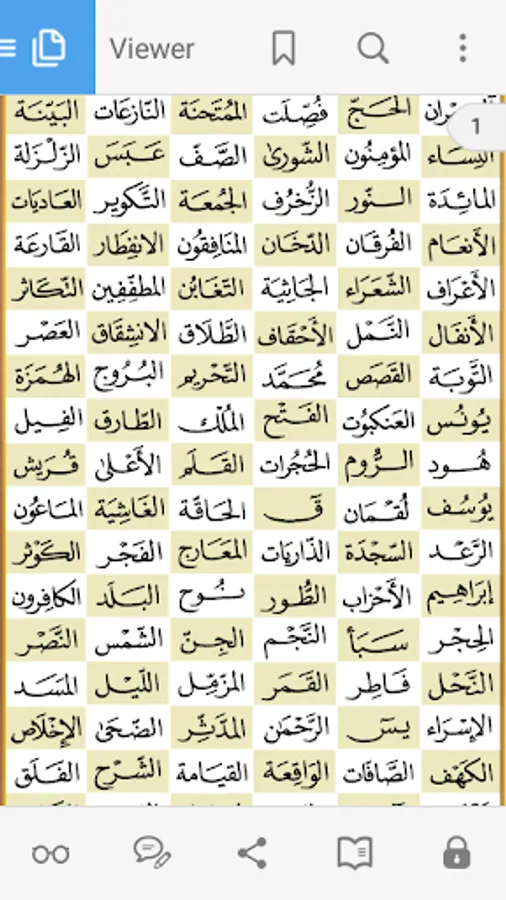 Viewer
1
الحج فصلت الممتحنة النازعات البينة
النساء المؤمنون الشورى الصف عبس الزلزلة
المائدة النور الزخرف الجمعة التكوير العاديات
الأنعام الفرقان الدخان المنافقون الانفطار القارعة
الأعراف الشعراء الجاثية التغابن المطففين التكاثر
الأنفال النمل الأحقاف الطلاق الانشقاق العصر
التوبة القصص محمد التحريم البروج الهمزة
يونس العنكبوت الفتح الملك الطارق الفيل
هود الروم الحجرات القلم الأعلى قريش
يوسف لقمان ق الحاقة الغاشية الماعون
الرعد السجدة الذاريات المعارج الفجر الكوثر
إبراهيم الأحزاب الطور نوح البلد الكافرون
الحجر سبأ النجم الجن الشمس النصر
النحل فاطر القمر المزمل الليل المسد
الإسراء يس الرحمن المدثر الضحى الإخلاص
الكهف الصافات الواقعة القيامة الشرح الفلق